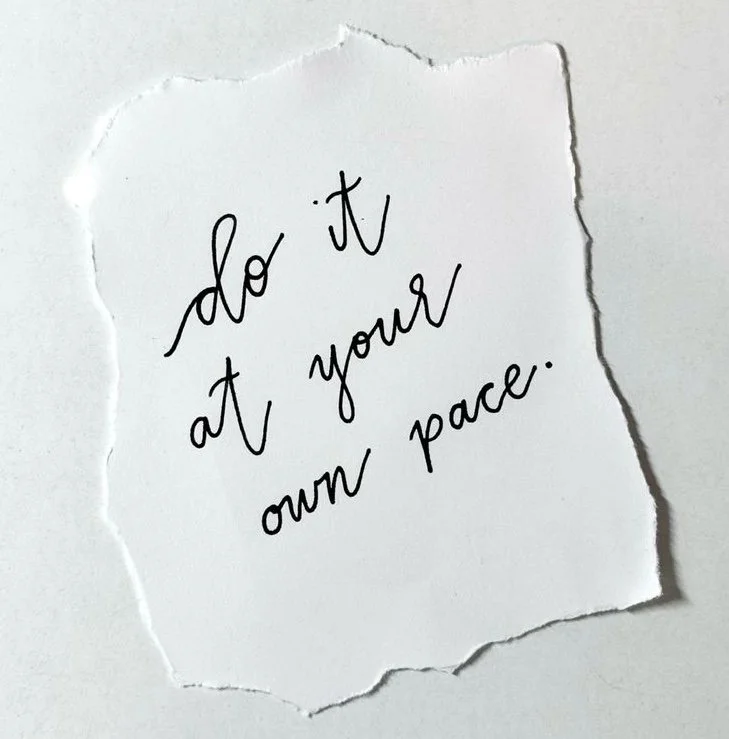 do it
at your
own pace.